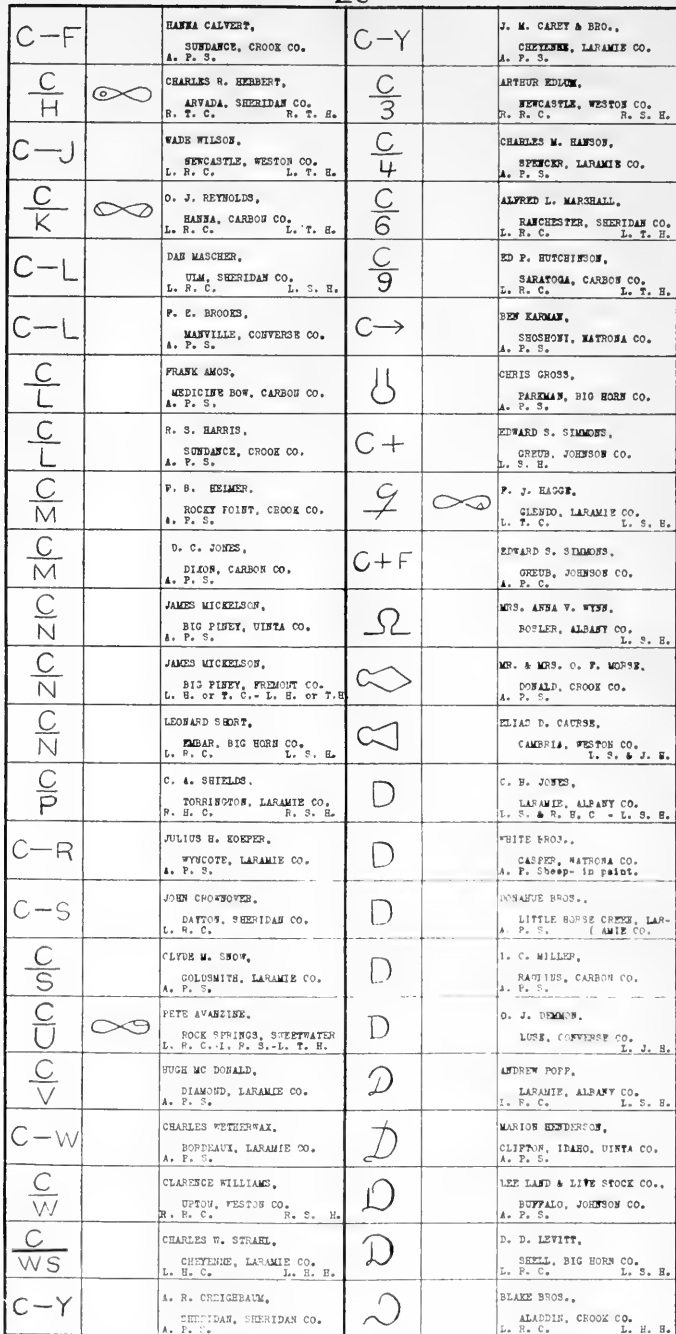 C-F
HANNA CALVERT,
SUNDANCE, CROOK CO.
A. P. S.
C
H
CHARLES R. HERBERT,
ARVADA, SHERIDAN CO.
R. T. C. R. T. H.
C-J
WADE WILSON,
NEWCASTLE, WESTON CO.
L. R. C. L. T. H.
C
K
O. J. REYNOLDS,
HANNA, CARBON CO.
L. R. C. L. T. H.
C-L
DAN MASCHER,
ULM, SHERIDAN CO.
L. R. C. L. S. H.
C-L
F. E. BROOKS,
MANVILLE, CONVERSE CO.
A. P. S.
C
L
FRANK AMOS,
MEDICINE BOW, CARBON CO.
A. P. S.
C
L
R. S. HARRIS,
SUNDANCE, CROOK CO.
A. P. S.
C
M
F. B. HEIMER,
ROCKY POINT, CROOK CO.
A. P. S.
C
M
D. C. JONES,
DIXON, CARBON CO.
A. P. S.
C
N
JAMES MICKELSON,
BIG PINEY, UINTA CO.
A. P. S.
C
N
JAMES MICKELSON,
BIG PINEY, FREMONT CO.
L. H. or T. C.- L. H. or T.H
C
N
LEONARD SHORT,
EMBAR, BIG HORN CO.
L. R. C. L. S. H.
C
P
C. A. SHIELDS,
TORRINGTON, LARAMIE CO.
R. H. C. R. S. H.
C-R
JULIUS H. KOEPER,
WYNCOTE, LARAMIE CO.
A. P. S.
C-S
JOHN CROWNOVER,
DAYTON, SHERIDAN CO.
L. R. C.
C
S
CLYDE M. SNOW,
GOLDSMITH, LARAMIE CO.
A. P. S.
C
U
PETE AVANZINE,
ROCK SPRINGS, SWEETWATER
L. R. C.-L. R. S.-L. T. H.
C
V
HUGH MC DONALD,
DIAMOND, LARAMIE CO.
A. P. S.
C-W
CHARLES WETHERWAX,
BORDEAUX, LARAMIE CO.
A. P. S.
C
W
CLARENCE WILLIAMS,
UPTON, WESTON CO.
R. R. C. R. S. H.
C
WS
CHARLES W. STRAHL,
CHEYENNE, LARAMIE CO.
L. H. C. L. H. H.
C-Y
A. R. CREIGHBAUM,
SHERIDAN, SHERIDAN CO.
A. P. S.
C-Y
J. M. CAREY & BRO.,
CHEYENNE, LARAMIE CO.
A. P. S.
C
3
ARTHUR EDLUM,
NEWCASTLE, WESTON CO.
R. R. C. R. S. H.
C
4
CHARLES M. HANSON,
SPENCER, LARAMIE CO.
A. P. S.
C
6
ALFRED L. MARSHALL,
RANCHESTER, SHERIDAN CO.
L. R. C. L. T. H.
C
9
ED P. HUTCHINSON,
SARATOGA, CARBON CO.
L. R. C. L. T. H.
C→
BEN KARMAN,
SHOSHONI, NATRONA CO.
A. P. S.
CHRIS GROSS,
PARKMAN, BIG HORN CO.
A. P. S.
C+
EDWARD S. SIMMONS,
GREUB, JOHNSON CO.
L. S. H.
F. J. HAGGE,
GLENDO, LARAMIE CO.
L. T. C. L. S. H.
C+F
EDWARD S. SIMMONS,
GREUB, JOHNSON CO.
A. P. C.
Ω
MRS. ANNA V. WYNN,
BOSLER, ALBANY CO.
L. S. H.
MR. & MRS. O. F. MORSE,
DONALD, CROOK CO.
A. P. S.
ELIAS D. CAURSE,
CAMBRIA, WESTON CO.
L. S. & J. H.
D
C. H. JONES,
LARAMIE, ALBANY CO.
L. S. & R. H. C - L. S. H.
D
WHITE BROS.,
CASPER, NATRONA CO.
A. P. Sheep- in paint.
D
DONAHUE BROS.,
LITTLE HORSE CREEK, LAR-
A. P. S. ( AMIE CO.
D
I. C. MILLER,
RAWLINS, CARBON CO.
A. P. S.
D
O. J. DEMMON,
LUSK, CONVERSE CO.
L. J. H.
D
ANDREW POPP,
LARAMIE, ALBANY CO.
L. S. H.
D
MARION HENDERSON,
CLIFTON, IDAHO, UINTA CO.
A. P. S.
D
LEE LAND & LIVE STOCK CO.,
BUFFALO, JOHNSON CO.
A. P. S.
D
D. D. LEVITT,
SHELL, BIG HORN CO.
L. R. C. L. S. H.
BLAKE BROS.,
ALADDIN, CROOK CO.
L. R. C. L. H. H.